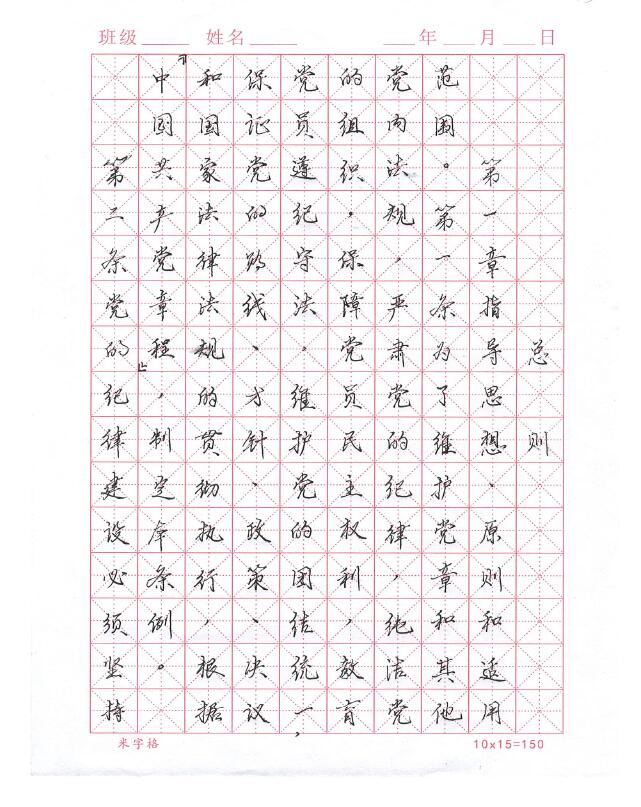 班级 姓名 年 月 日
总则
第一章指导思想、原则和适用
范围。第一条为了维护党章和其他
党内法规，严肃党的纪律，纯洁党
的组织，保障党员民主权利，教育
党员遵纪守法，维护党的团结统一，
保证党的路线、方针、政策、决议
和国家法律法规的贯彻执行，根据
『中国共产党章程』，制定本条例。
第二条党的纪律建设必须坚持
米字格 10x15=150